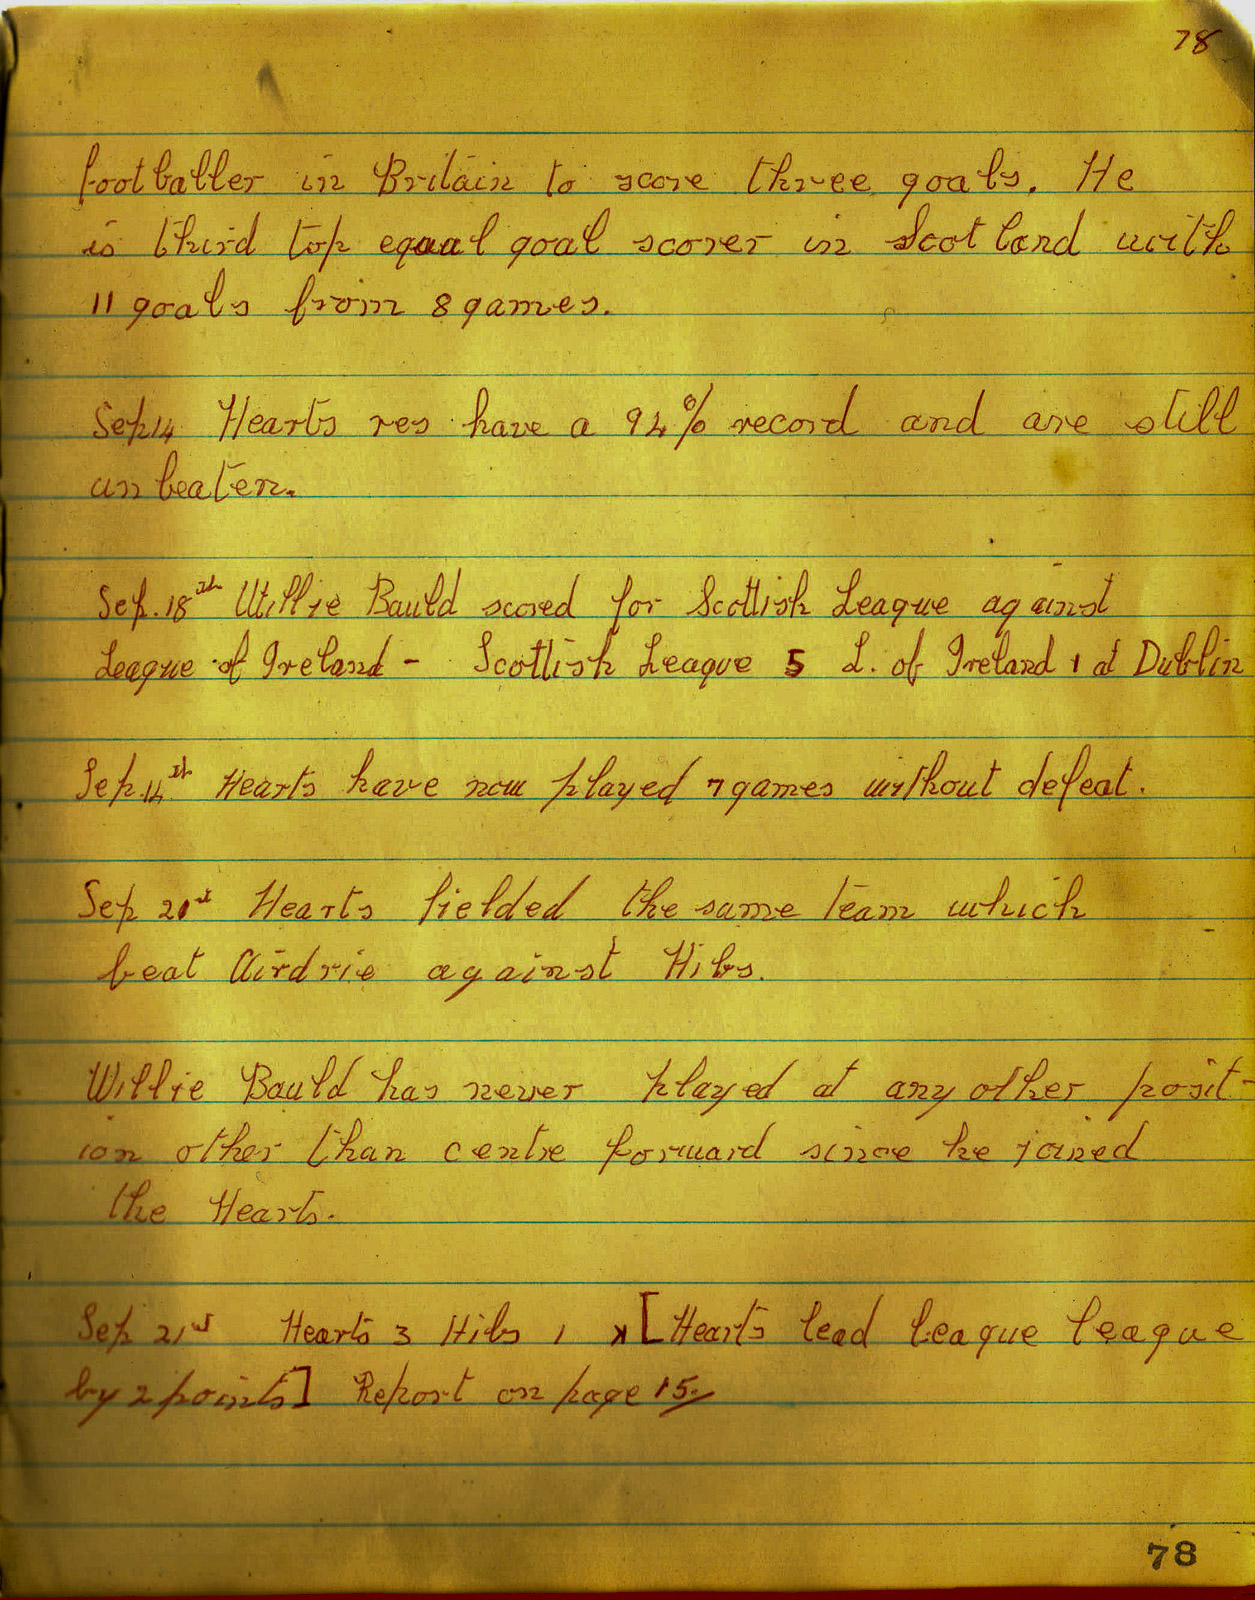 78
footballer in Britain to score three goals. He
is third top equal goal scorer in Scotland with
11 goals from 8 games.
Sep 14 Hearts res have a 94% record and are still
unbeaten.
Sep. 18th Willie Bauld scored for Scottish League against
League of Ireland - Scottish League 5 L. of Ireland 1 at Dublin
Sep. 14th Hearts have now played 7 games without defeat.
Sep 21st Hearts fielded the same team which
beat Airdrie against Hibs.
Willie Bauld has never played at any other posit-
ion other than centre forward since he joined
the Hearts.
Sep 21st Hearts 3 Hibs 1 x [Hearts lead league league
by 2 points] Report on page 15.
78